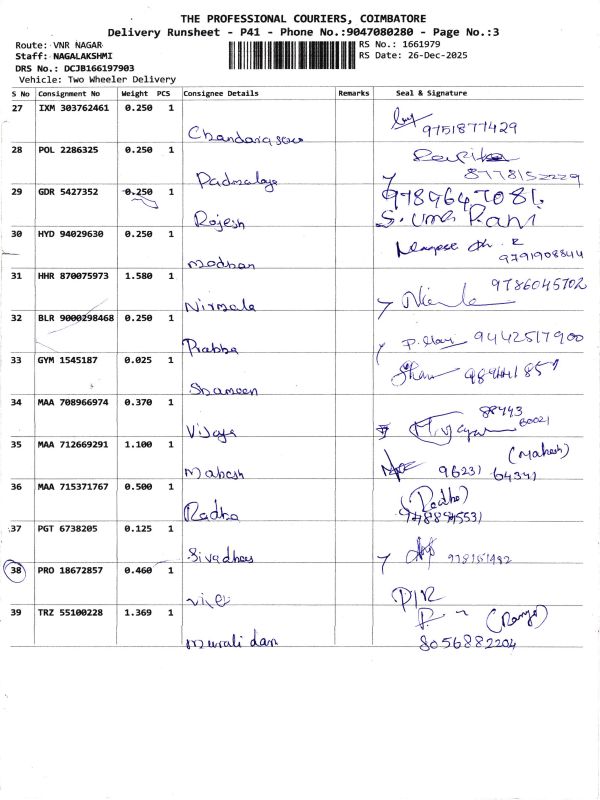 THE PROFESSIONAL COURIERS, COIMBATORE
Delivery Runsheet - P41 - Phone No.:9047080280 - Page No.:3
Route: VNR NAGAR
Staff: NAGALAKSHMI
DRS No.: DCJB166197903
Vehicle: Two Wheeler Delivery
RS No.: 1661979
RS Date: 26-Dec-2025
S No Consignment No Weight PCS Consignee Details Remarks Seal & Signature
27 IXM 303762461 0.250 1
9751877429
28 POL 2286325 0.250 1
8778152229
29 GDR 5427352 0.250 1
Rajesh S. Uma Rani
30 HYD 94029630 0.250 1
Madhan 9791908844
31 HHR 870075973 1.580 1
9786045702
Nirmala
32 BLR 9000298468 0.250 1
Prabha 9442517900
33 GYM 1545187 0.025 1
Shameen
34 MAA 708966974 0.370 1
88443
60021
Vijaya
35 MAA 712669291 1.100 1
(Mahesh)
Mahesh 96231 64341
36 MAA 715371767 0.500 1
(Radha)
Radha
37 PGT 6738205 0.125 1
38 PRO 18672857 0.460 1
39 TRZ 55100228 1.369 1
Muralidaran 8056882204